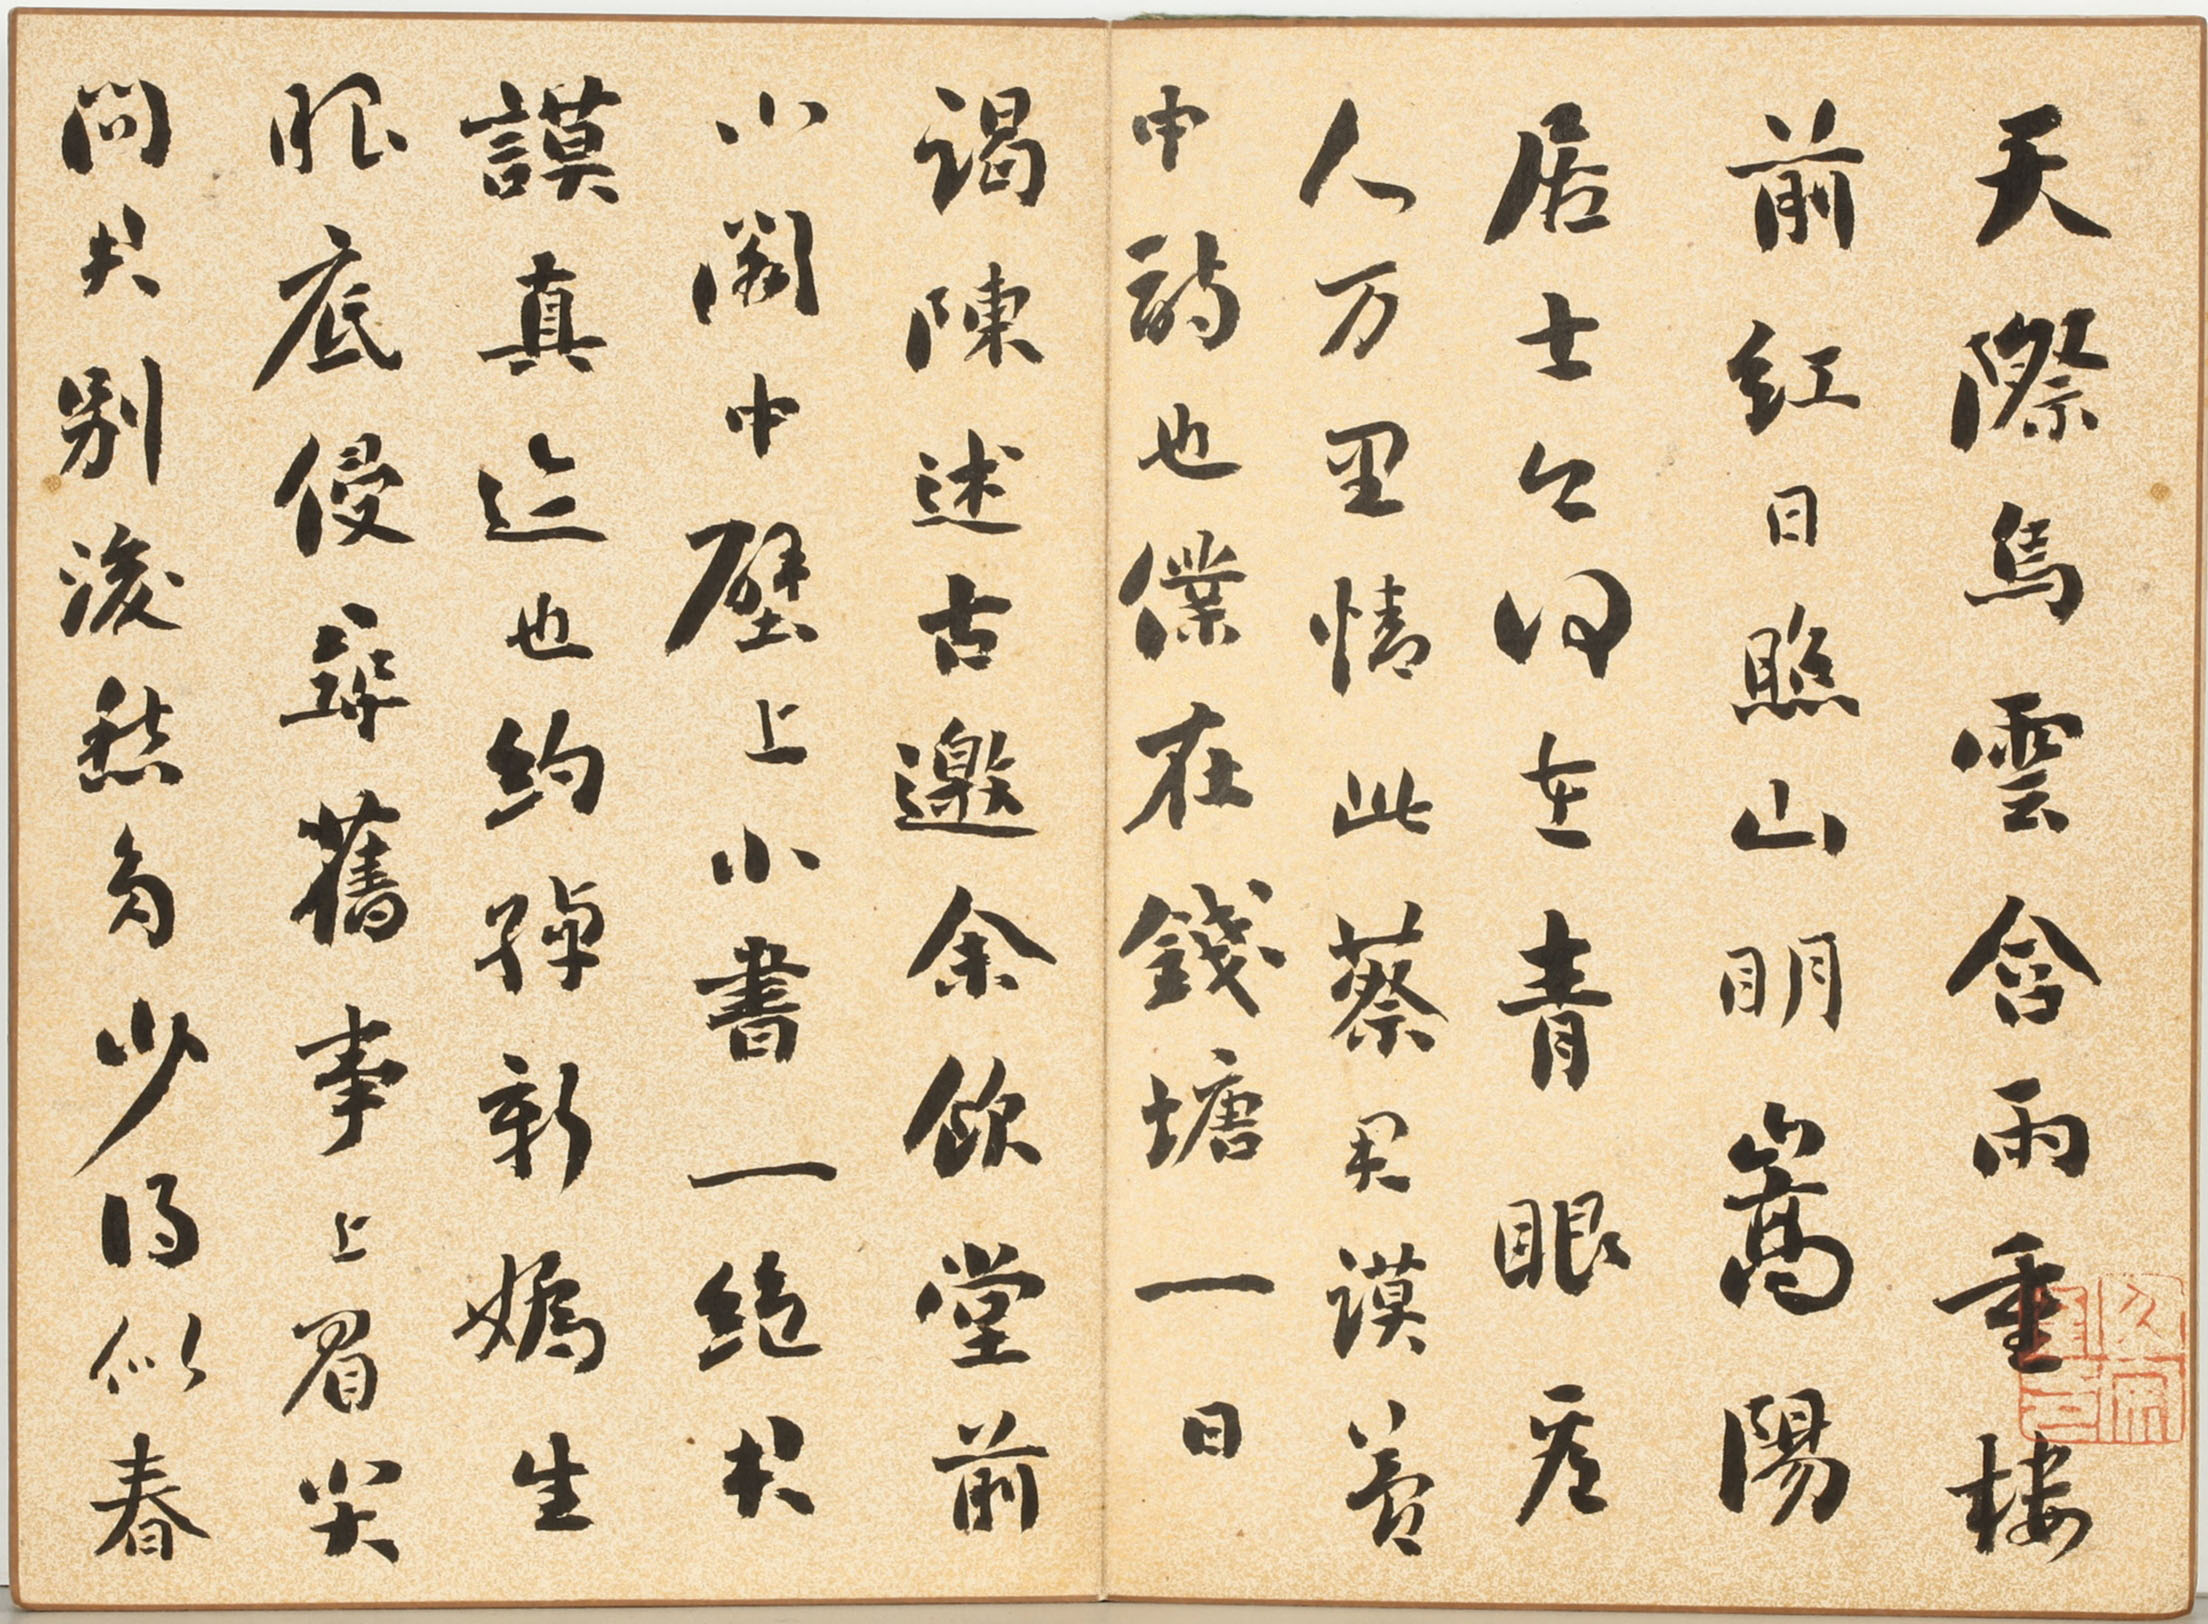 天際烏雲含雨重樓
前紅日照山明嵩陽
居士今何在青眼看
人万里情此蔡君謨夢
中詩也僕在錢塘一日
謁陳述古邀余飲堂前
小閣中壁上小書一絕君
謨真迹也約綽新嬌生
眼底侵尋舊事上眉尖
問君別後愁多少得似春